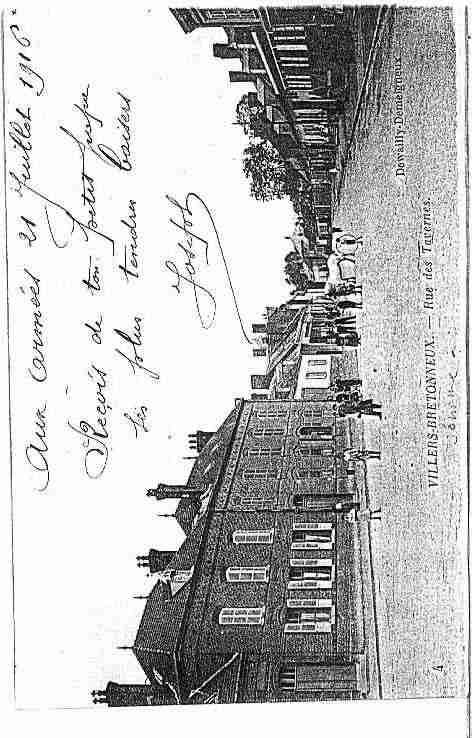 Aux Armées 21 Juillet 1916
Reçois de ton petit papa
les plus tendres baisers
Joseph
VILLERS-BRETONNEUX. — Rue des Tavernes.
Somme
4